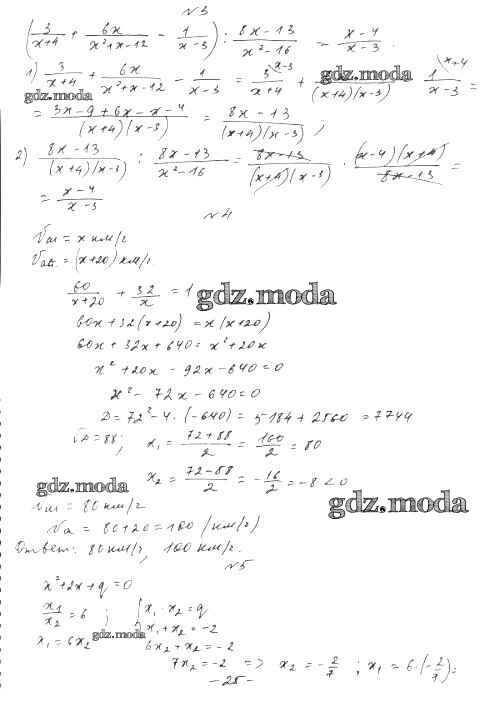 №3
(3/(x+4) + 6x/(x²+x-12) - 1/(x-3)) : (8x-13)/(x²-16) = (x-4)/(x-3).
1) 3/(x+4) + 6x/(x²+x-12) - 1/(x-3) = 3\x-3/(x+4) + /(x+4)(x-3) 1\x+4/(x-3) =
gdz.moda
gdz.moda
= (3x-9+6x-x-4)/((x+4)(x-3)) = (8x-13)/((x+4)(x-3));
2) (8x-13)/((x+4)(x-3)) : (8x-13)/(x²-16) = (8x-13)/((x+4)(x-3)) · (x-4)(x+4)/(8x-13) =
= (x-4)/(x-3)
№4
Vм = x км/г
Vавт. = (x+20) км/г.
60/(x+20) + 32/x = 1 gdz.moda
60x+32(x+20) = x(x+20)
60x+32x+640 = x²+20x
x²+20x-92x-640=0
x²-72x-640=0
D=72²-4·(-640) = 5184+2560 = 7744
√D=88; x₁ = (72+88)/2 = 160/2 = 80
x₂ = (72-88)/2 = -16/2 = -8<0
gdz.moda
gdz.moda
Vм = 80 км/г
Va = 80+20=100 (км/г)
Ответ: 80 км/г, 100 км/г.
№5
x²+2x+q=0
x₁/x₂ = 6 ; { x₁·x₂=q
x₁+x₂=-2
x₁=6x₂ gdz.moda 6x₂+x₂=-2
7x₂=-2 => x₂=-2/7 ; x₁=6·(-2/7);
-25-